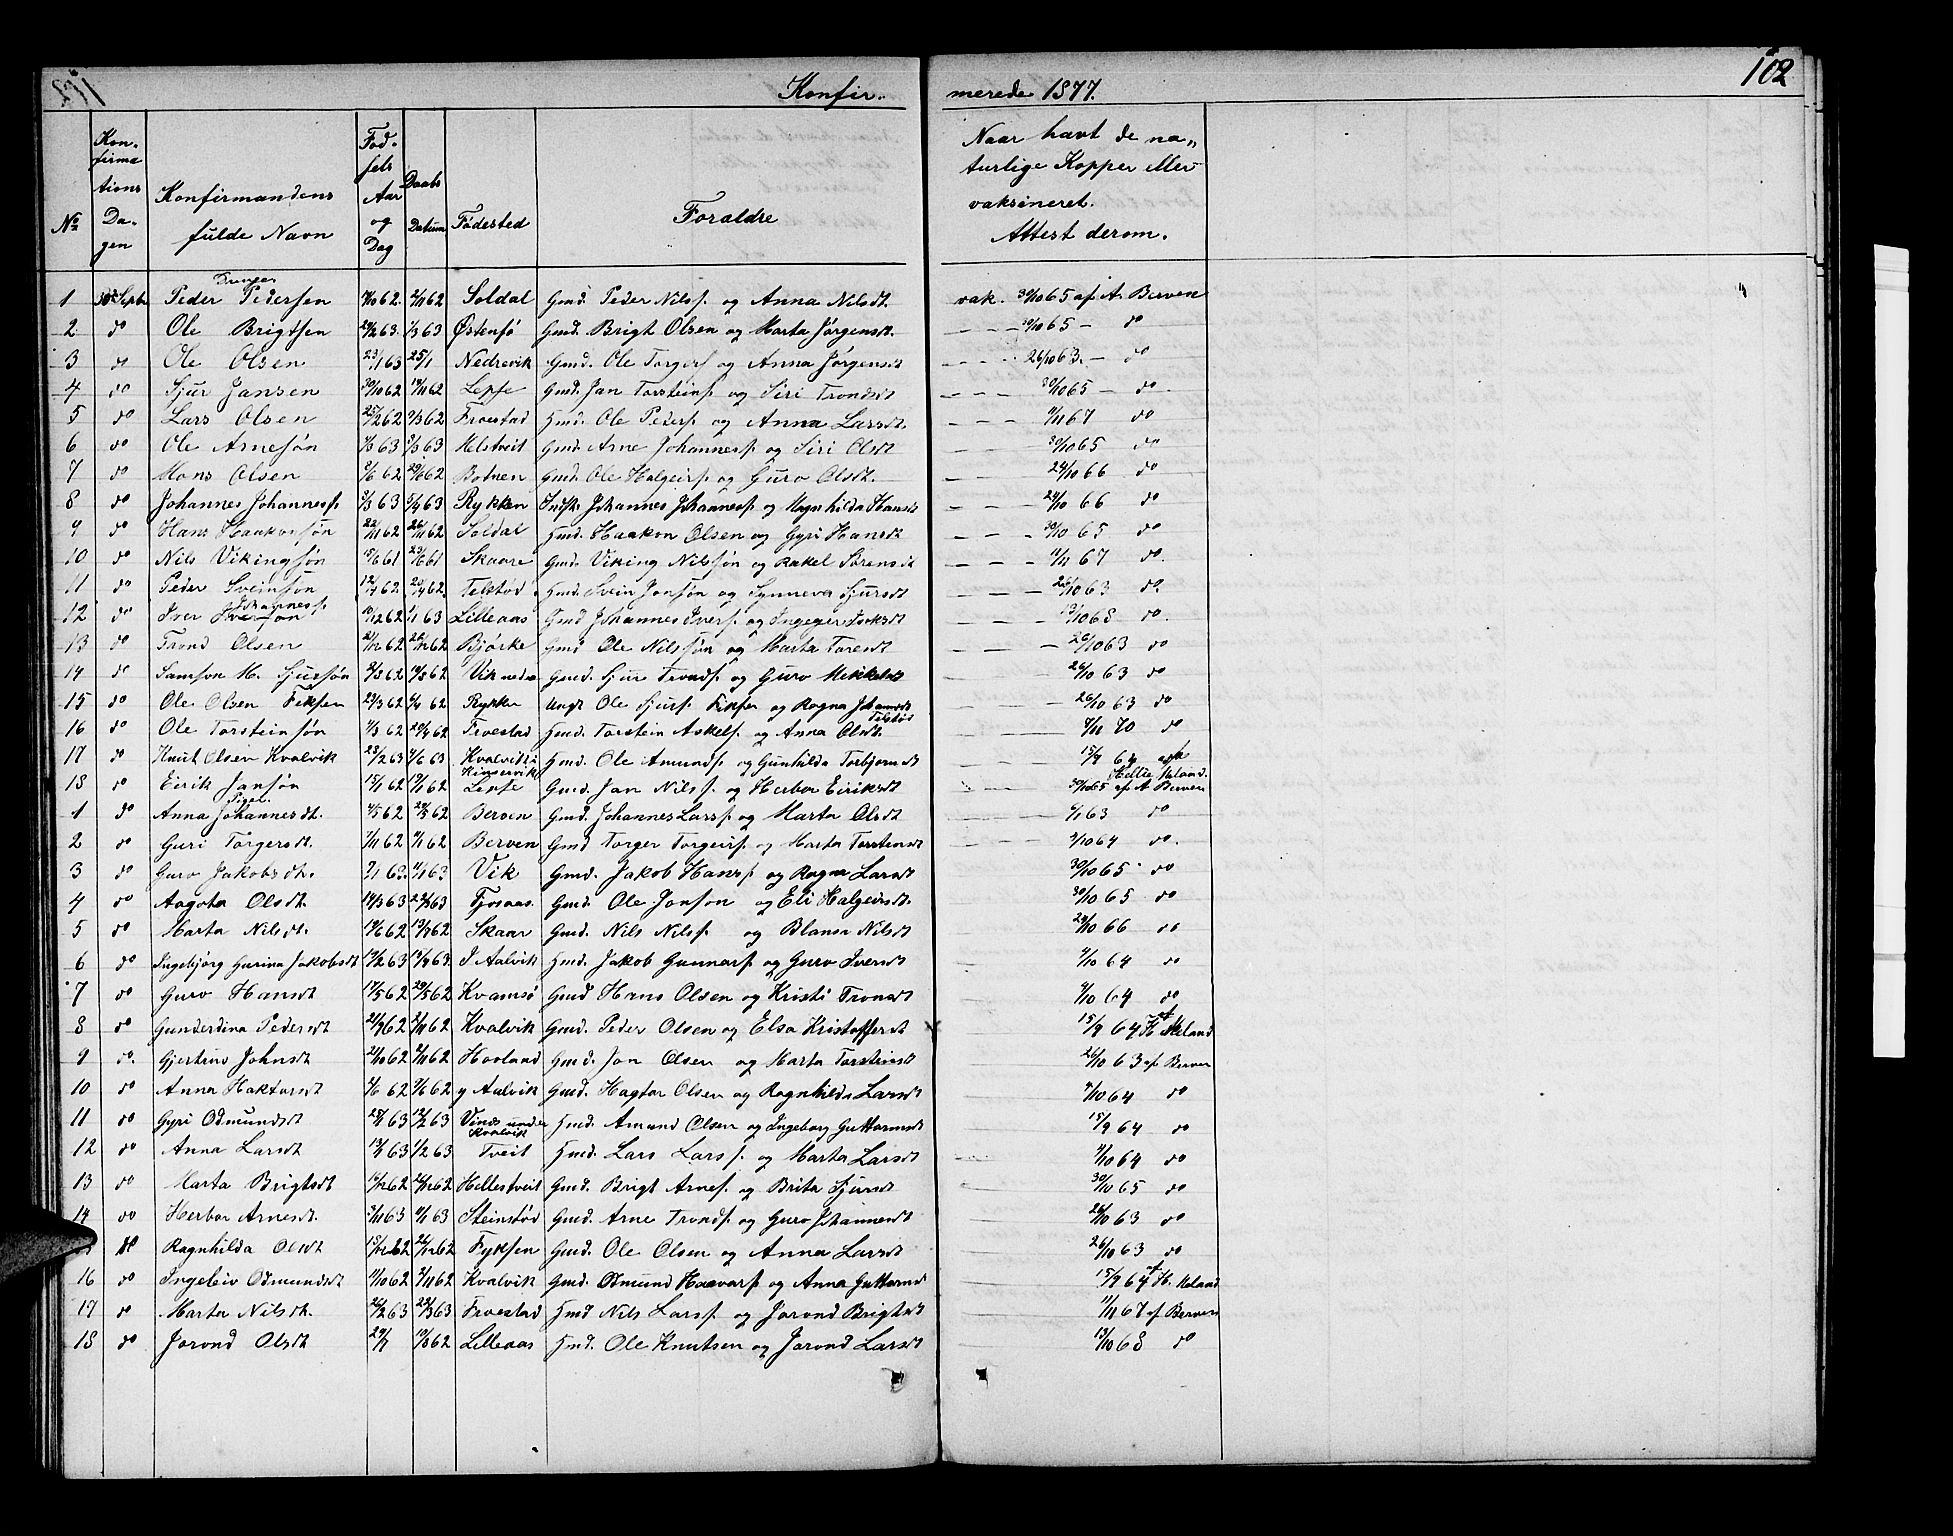 Konfir-merede 1877. 102
No Konfirmations Dagen Konfirmandens fulde Navn Fødsels Aar og Dag Daabs Datum Fødested Forældre Naar havt de naturlige Kopper eller vaksineret. Attest derom.
Drenge
1 30te Septbr Peder Pedersen 62. 2/11 62 Soldal Gmd. Peder Nilss. og Anna Nilsdt. vak. 30/10 65 af A. Berven
2 do Ole Brigtsen 63. 1/3 63 Østensø Gmd. Brigt Olsen og Marta Jørgensdt. 30/10 65 - do
3 do Ole Olsen 23/1 63 25/1 Nedrevik Gmd. Ole Torgers. og Anna Jørgensdt 26/10 63. - do
4 do Sjur Jansen 30/10 62 62 Lepse Gmd. Jan Torsteins. og Siri Trondsdt 30/10 65 - do
5 do Lars Olsen 62 9/3 62 Froestad Hmd. Ole Peders. og Anna Larsdt. 11/11 67 do
6 do Ole Arnesøn 63 63 Melstveit Gmd. Arne Johanness. og Siri Olsdt 30/10 65 do
7 do Mons Olsen 62 62 Botnen Gmd. Ole Halgeirs. og Guro Olsdt. 24/10 66 do
8 do Johannes Johanness. 63 63 Rykken Indst. Johannes Johanness. og Magnhilda Hansdt 24/10 66 do
9 do Hans Haakonsøn 22/11 62 62 Soldal Hmd. Haakon Olsen og Gyri Hansdt 30/10 65 do
10 do Nils Vikingsøn 15/6 61 61 Skaare Gmd. Viking Nilssøn og Rakel Sørensdt 11/11 67 do.
11 do Peder Sveinsøn 62 62 Telstød Hmd. Svein Jonsøn og Synneva Sjursdt 26/10 63 do.
12 do Iver Johanness. Iversøn 62 63 Lilleaas Gmd Johannes Ivers. og Ingeger Isaksdt 13/10 68 do.
13 do Trond Olsen 62 62 Bjørke Gmd Ole Nilssøn og Marta Toresdt 26/10 63 do
14 do Samson M. Sjursøn 62 62 Vik nedre Gmd. Sjur Tronds. og Guro Mikkelsdt 26/10 63 do
15 do Ole Olsen Fiksen 23/3 62 62 Rykke Ungk. Ole Sjurs. Fikse og Ragna Johansdt Telstø 26/10 63 do
16 do Ole Torsteinsøn 62 62 Froestad Hmd. Torstein Askels. og Anna Olsdt. 9/11 70 do
17 do Knut Olsen Kvalvik 23/2 63 63 Kvalvik i Kinservik Hmd. Ole Amunds. og Gunhilda Torbjørnsdt 15/9 64 Meland.
18 do Eirik Jansøn 15/1 62 19/1 62 Lepse Gmd. Jan Nilss. og Herbor Eiriksdt 30/10 65 af A Berven
Piger.
1 do Anna Johannesdt. 62 62 Berven Gmd. Johannes Larss. og Marta Olsdt 63 do
2 do Guri Torgersdt. 62 62 Berven Gmd Torger Torgeirs. og Marta Torstensdt 10 64 do.
3 do Guro Jakobsdt. 63 63 Vik Gmd. Jakob Hanss. og Ragna Larsdt 30/10 65 do
4 do Aagota Olsdt. 14/3 63 63 Fjosaas. Gmd. Ole Jonson og Eli Halgeirsdt. 30/10 65 do
5 do Marta Nilsdt. 62 62 Skaar Gmd. Nils Nilss. og Blansa Nilsdt 24/10 66 do
6 do Ingebjørg Gurina Jakobsdt 63 63 I Aalvik Hmd. Jakob Gunnars. og Guro Iversdt 10 64 do
7 do Guro Hansdt 62 62 Kvamsø Gmd Hans Olsen og Kristi Tronsdt 10 64 do
8 do Gunderdina Pedersdt 62 62 Kvalvik Gmd. Peder Olsen og Elsa Kristoffersdt 15/9 64 af H. Meland
9 do. Gjertrud Johnsdt 62 62 Haaland Gmd. Jon Olsen og Marta Torsteinsdt 26/10 63 af Berven
10 do Anna Haktorsdt 62 62 y Aalvik Gmd. Hagtor Olsen og Ragnhilda Larsdt 10 64 do
11 do Gyri Odmundsdt 63 63 Kvalvik Hmd. Amund Olsen og Ingeborg Guttormsdt 15/9 64 do
12 do Anna Larsdt 63 63 Tveit Hmd. Lars Larss. og Marta Larsdt 10 64 do
13 do Marta Brigtsdt 62 62 Hellestveit Gmd. Brigt Arnes. og Brita Sjursdt 30/10 65 do
14 do Herbor Arnesdt. 63 63 Steinstød Gmd. Arne Tronds. og Guro Johannesdt 26/10 63 do
do Ragnhilda Olsdt 62 62 Fyksen Gmd. Ole Olsen og Anna Larsdt 26/10 63 do
16 do Ingeleiv Odmundsdt 62 62 Kvalvik Gmd. Odmund Haavars. og Anna Guttormsdt 15/9 64 af H. Meland
17 do Marta Nilsdt. 63 63 Froestad Hmd Nils Larss. og Jorond Brigtsdt 11/11 67 af Berven
18 do Jorond Olsdt 62 Lilleaas Hmd. Ole Knutsen og Jorond Larsdt 13/10 68 do